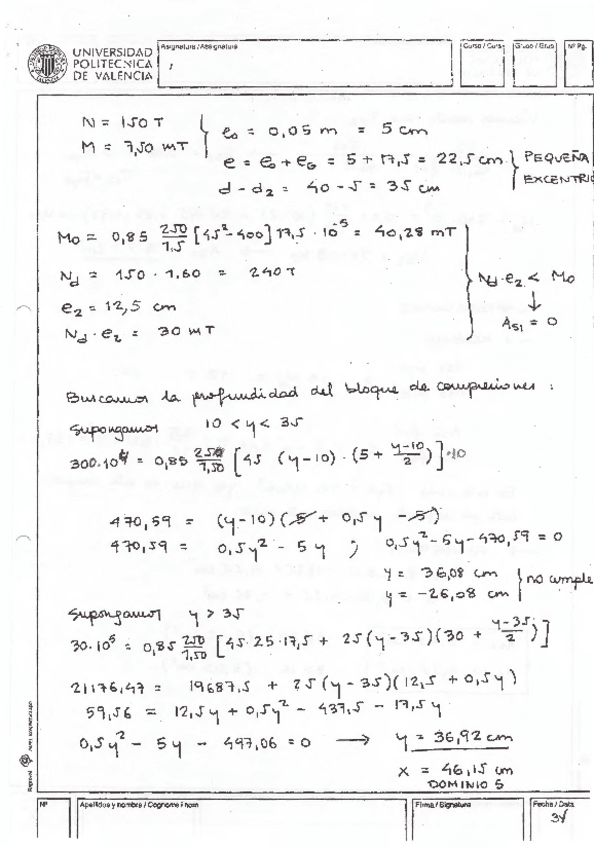 UNIVERSIDAD
POLITECNICA
DE VALENCIA
Asignatura / Assignatura
Curso / Curs
Grupo / Grup
Nº Pg.
N = 150 T
M = 7,50 mT
e₀ = 0,05 m = 5 cm
e = e₀ + e_G = 5 + 17,5 = 22,5 cm
d - d₂ = 40 - 5 = 35 cm
PEQUEÑA
EXCENTRI
M₀ = 0,85 250/1,5 [45² - 400] 17,5 · 10⁻⁵ = 40,28 mT
N_d = 150 · 1,60 = 240 T
e₂ = 12,5 cm
N_d · e₂ = 30 mT
N_d · e₂ < M₀
↓
A_S1 = 0
Buscamos la profundidad del bloque de compresiones :
Supongamos 10 < y < 35
300·10⁴ = 0,85 250/1,50 [45 (y-10) · (5 + (y-10)/2)]·10
470,59 = (y-10)(5 + 0,5y - 5)
470,59 = 0,5y² - 5y ; 0,5y² - 5y - 470,59 = 0
y = 36,08 cm
y = -26,08 cm
no cumple
Supongamos y > 35
30·10⁵ = 0,85 250/1,50 [45·25·17,5 + 25(y-35)(30 + (y-35)/2)]
21176,47 = 19687,5 + 25(y-35)(12,5 + 0,5y)
59,56 = 12,5y + 0,5y² - 437,5 - 17,5y
0,5y² - 5y - 497,06 = 0 → y = 36,92 cm
x = 46,15 cm
DOMINIO 5
Nº
Apellidos y nombre / Cognome i nom
Firma / Signatura
Fecha / Data